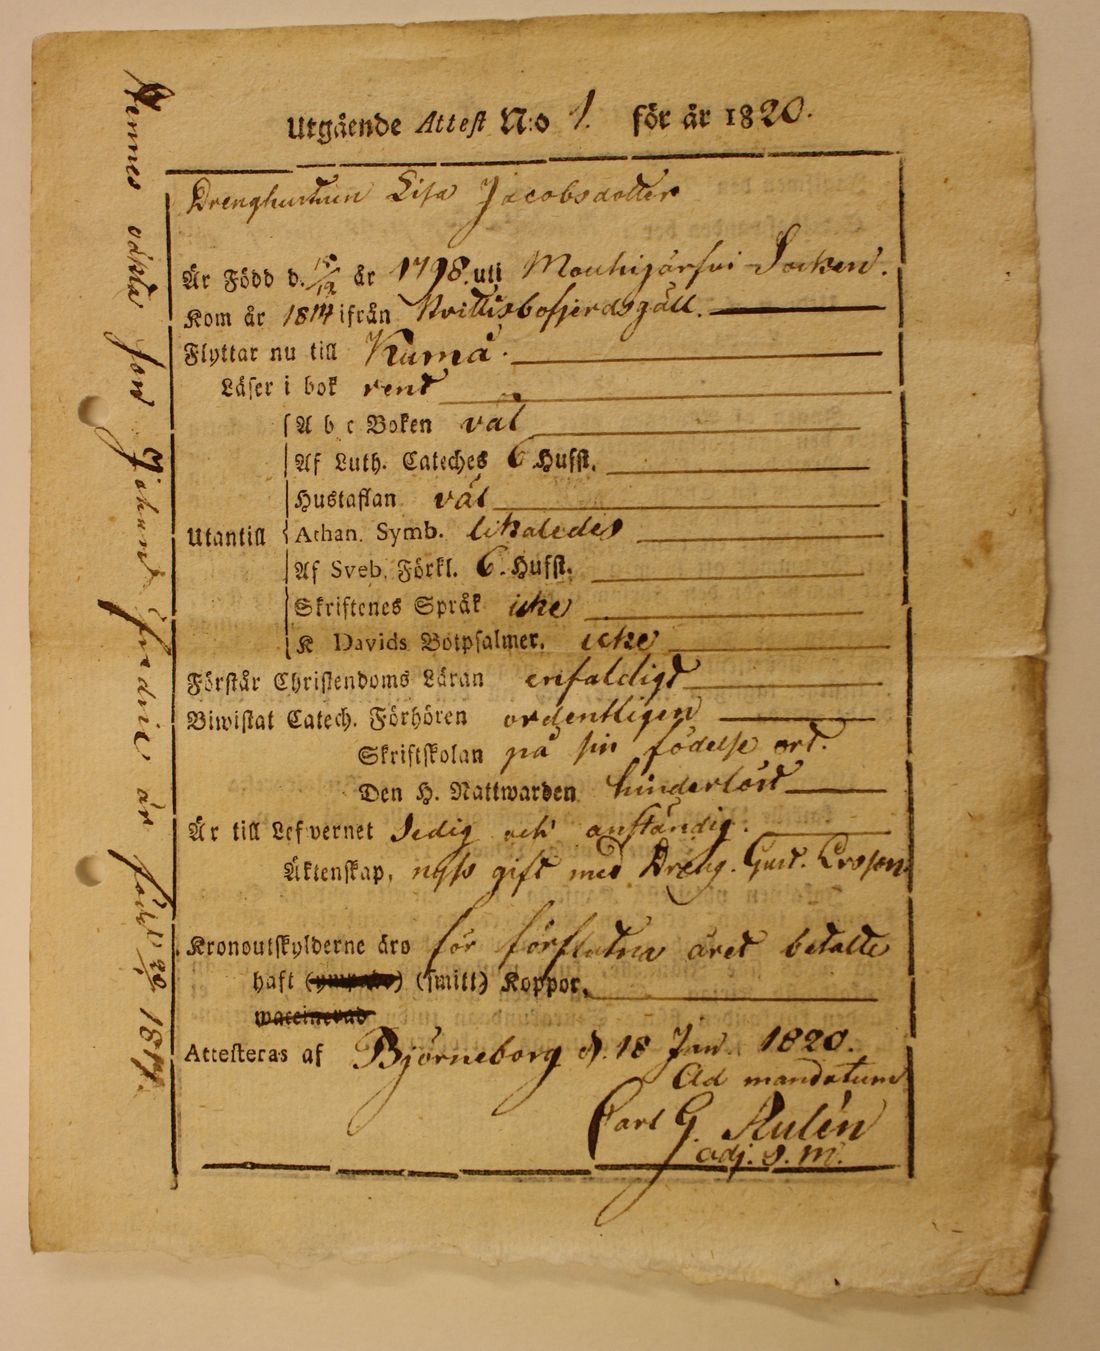 Utgående Attest N:o 1. för år 1820.
Drenghustrun Lisa Jacobsdotter
Är Född d. 18/12 år 1798. uti Mouhijärfvi Socken.
Kom år 1814 ifrån Hvittisbofjerdsgäll.
Flyttar nu till Kumå.
Läser i bok rent
A b c Boken väl
Af Luth. Cateches 6 Hufst.
Hustaflan väl
Utantill Athan. Symb. likaledes
Af Sveb. Förkl. 6. Hufst.
Skriftenes Språk icke
K Davids Botpsalmer. icke
Förstår Christendoms Läran enfaldigt
Biwistat Catech. Förhören ordentligen
Skriftskolan på sin födelse ort.
Den H. Nattwarden hinderlöst
Är till Lefvernet Sedig och anständig.
Äktenskap, nyss gift med Dreng. Gust. Ersson.
Kronoutskylderne äro för förflutna året betalte
haft (ympade) (smitt) Koppor.
waccinerad
Attesteras af Björneborg d. 18 Jan. 1820.
Ad mandatum
Carl G. Rulén
adj. s. m.
Hennes oäkta son Johan Fredric är född 1817.